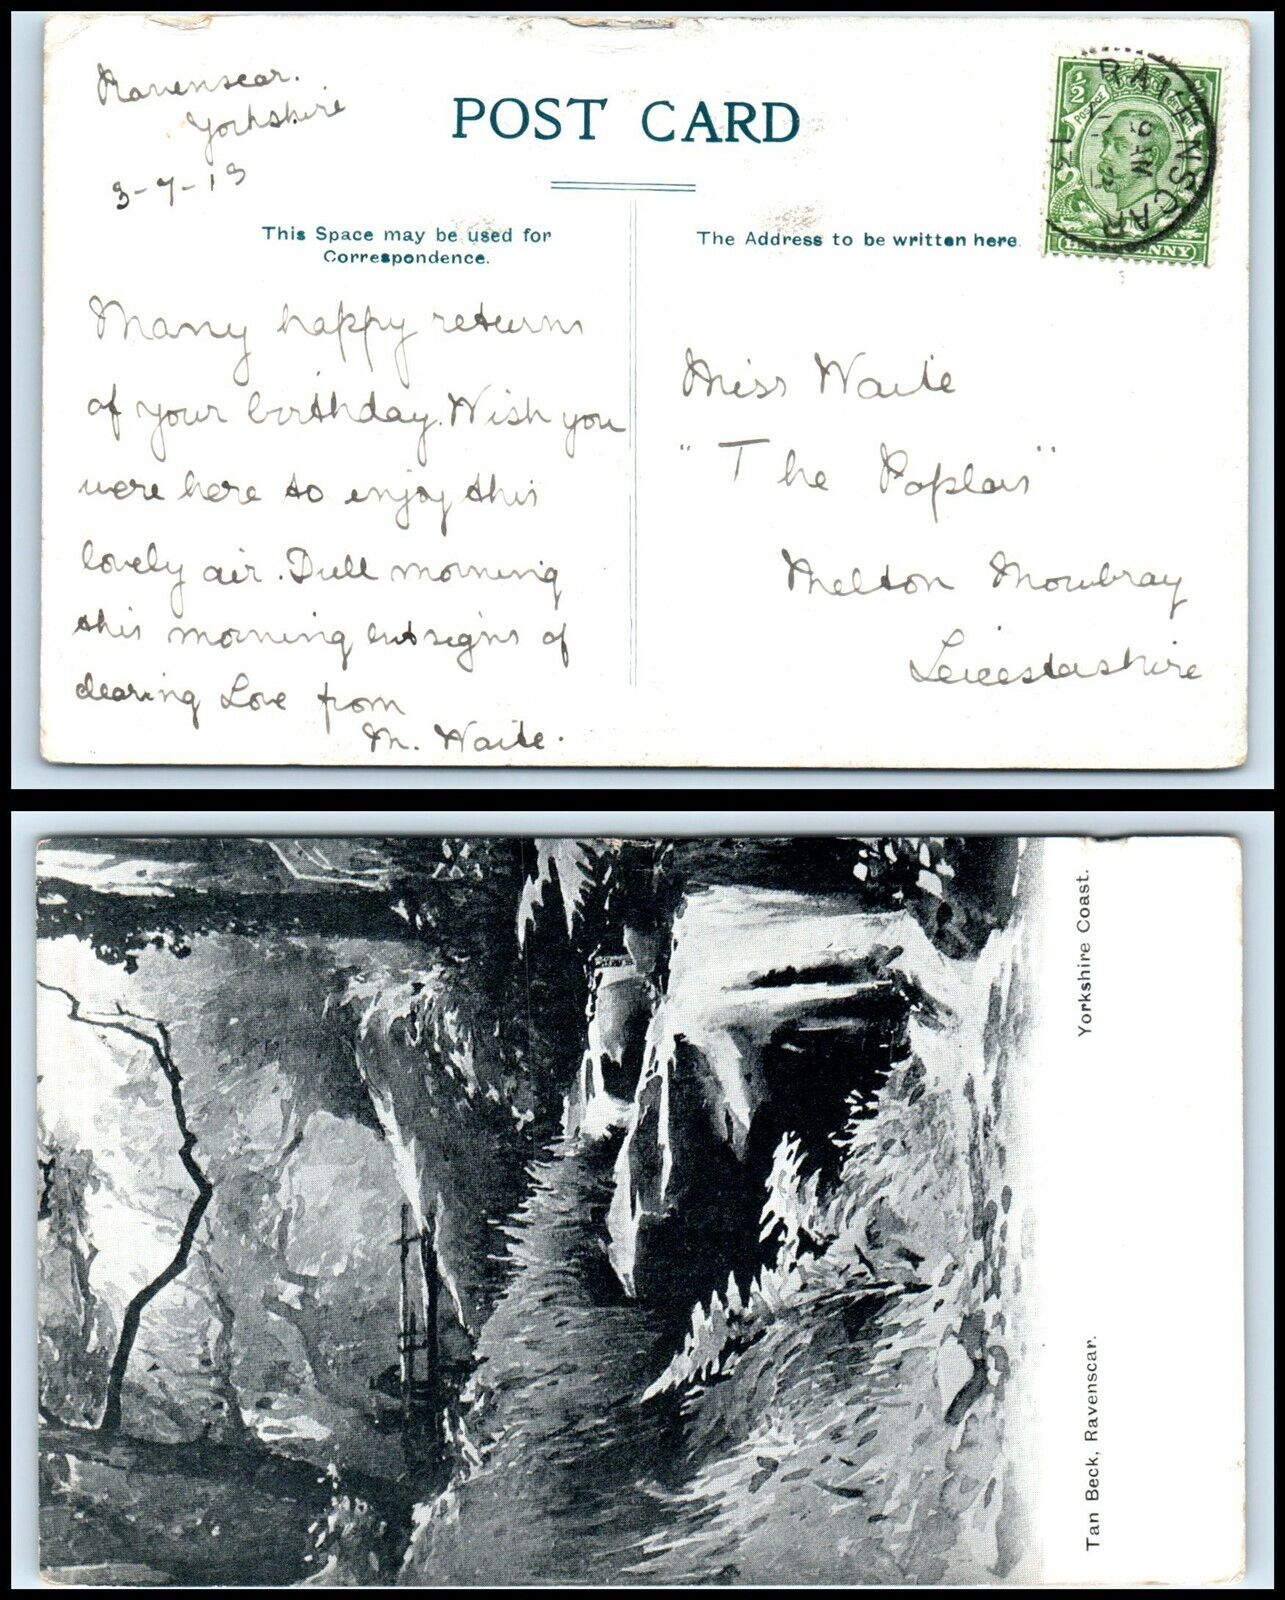 Ravenscar.
Yorkshire
3-7-13
POST CARD
This Space may be used for
Correspondence.
The Address to be written here.
½
POSTAGE
RAVENSCAR
9 AM
Many happy returns
of your birthday. Wish you
were here to enjoy this
lovely air. Dull morning
this morning but signs of
clearing Love from
M. Waite.
Miss Waite
"The Poplars"
Melton Mowbray
Leicestershire
Tan Beck, Ravenscar.
Yorkshire Coast.